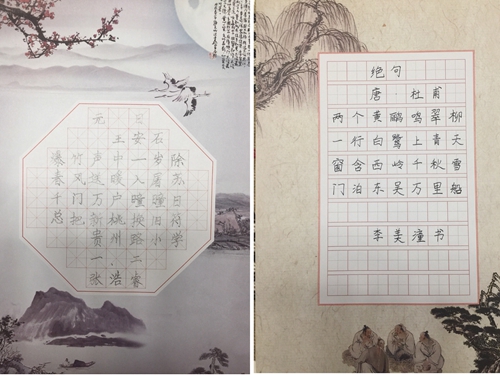 元日
王安石
爆竹声中一岁除
春风送暖入屠苏
千门万户曈曈日
总把新桃换旧符
贵州路小学
一.二
张浩睿
绝句
唐·杜甫
两个黄鹂鸣翠柳
一行白鹭上青天
窗含西岭千秋雪
门泊东吴万里船
李美潼书